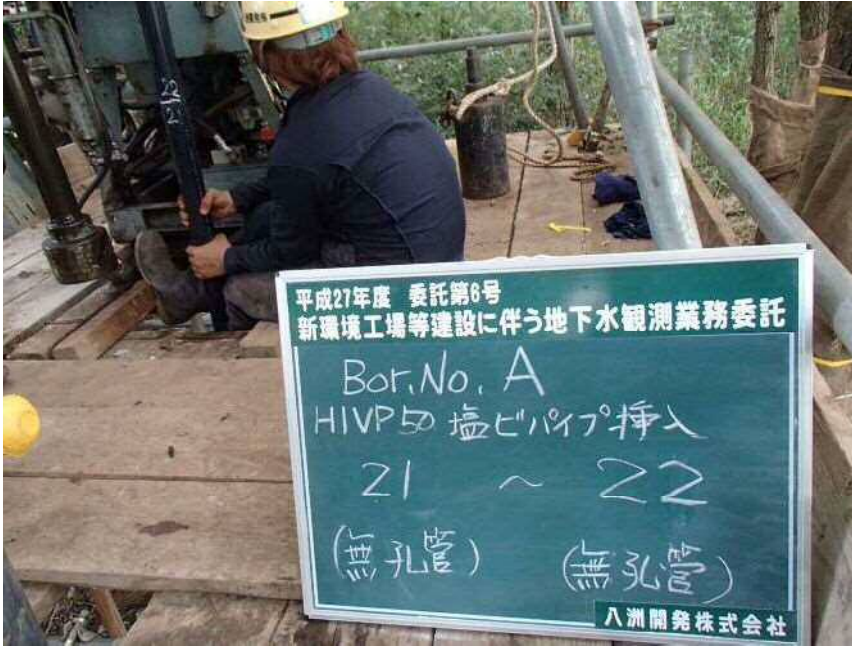 平成27年度 委託第6号
新環境工場等建設に伴う地下水観測業務委託
Bor.No. A
HIVP50 塩ビパイプ挿入
21 ~ 22
(無孔管) (無孔管)
八洲開発株式会社